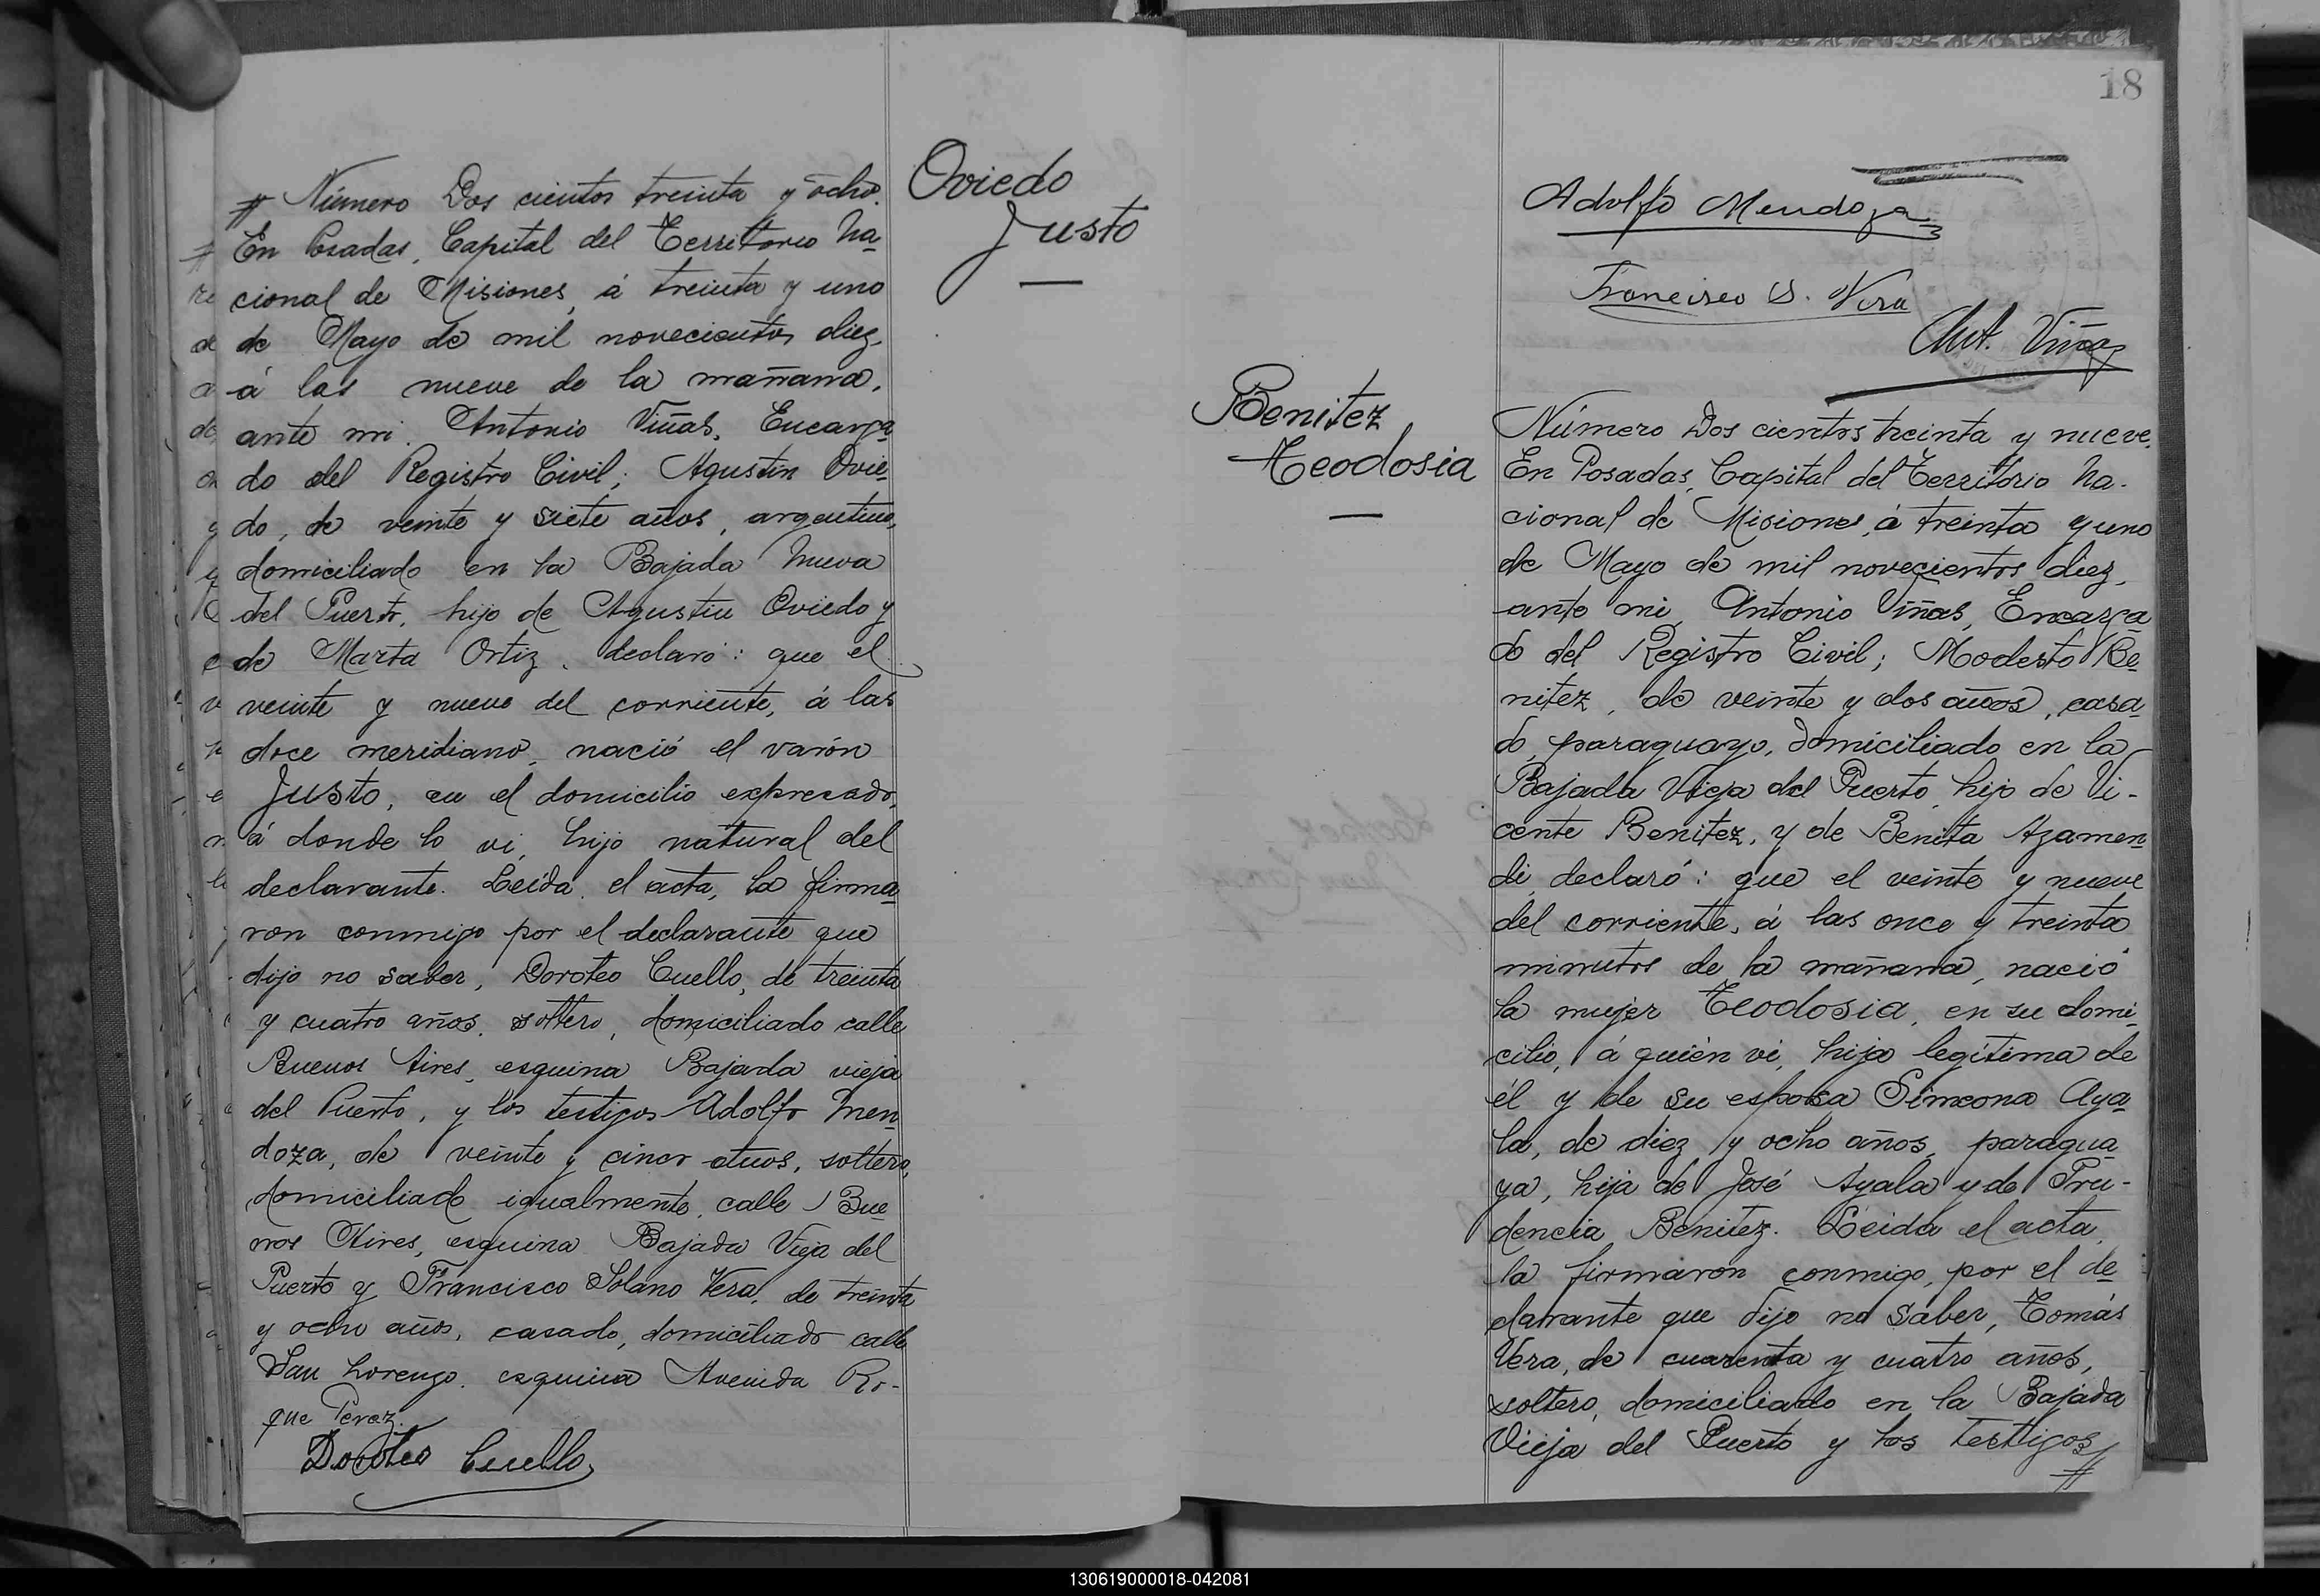 Oviedo
Justo
# Número Dos cientos treinta y ocho.
En Posadas, Capital del Territorio Na
cional de Misiones, á treinta y uno
de Mayo de mil novecientos diez,
á las nueve de la mañana,
ante mi, Antonio Viñas, Encarga
do del Registro Civil; Agustin Ovie
do, de veinte y siete años, argentino,
domiciliado en la Bajada Nueva
del Puerto, hijo de Agustin Oviedo y
de Marta Ortiz, declaró: que el
veinte y nueve del corriente, á las
doce meridiano, nació el varón
Justo, en el domicilio expresado,
á donde lo vi, hijo natural del
declarante. Leida el acta, la firma
ron conmigo por el declarante que
dijo no saber, Doroteo Cuello, de treinta
y cuatro años, soltero, domiciliado calle
Buenos Aires, esquina Bajada vieja
del Puerto, y los testigos Adolfo Men
doza, de veinte y cinco años, soltero,
domiciliado igualmente, calle Bue
nos Aires, esquina Bajada Vieja del
Puerto y Francisco Solano Vera, de treinta
y ocho años, casado, domiciliado calle
San Lorenzo, esquina Avenida Ro-
que Perez.
Doroteo Cuello
18
Adolfo Mendoza
Francisco S. Vera
Ant. Viñas
Benitez
Teodosia
Número Dos cientos treinta y nueve.
En Posadas, Capital del Territorio Na-
cional de Misiones, á treinta y uno
de Mayo de mil novecientos diez,
ante mi, Antonio Viñas, Encarga
do del Registro Civil; Modesto Be
nitez, de veinte y dos años, casa
do, paraguayo, domiciliado en la
Bajada Vieja del Puerto, hijo de Vi-
cente Benitez, y de Benita Azamen
di, declaró: que el veinte y nueve
del corriente, á las once y treinta
minutos de la mañana, nació
la mujer Teodosia, en su domi
cilio, á quién vi, hija legítima de
él y de su esposa Simeona Aya
la, de diez y ocho años, paragua
ya, hija de José Ayala y de Pru-
dencia Benitez. Leida el acta,
la firmaron conmigo, por el de
clarante que dijo no saber, Tomás
Vera, de cuarenta y cuatro años,
soltero, domiciliado en la Bajada
Vieja del Puerto y los testigos
#
130619000018-042081